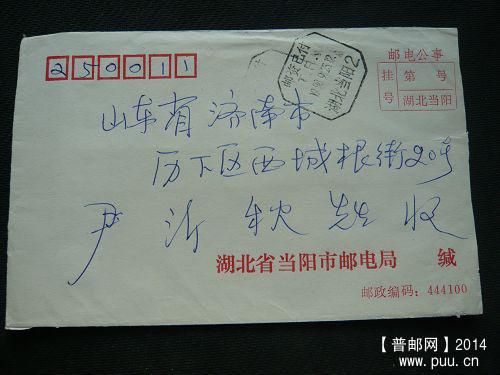 250011
邮电公事
挂号
第 号
湖北当阳
邮资已付
湖北当阳2
山东省济南市
历下区西城根街20号
尹沂秋先生 收
湖北省当阳市邮电局 缄
邮政编码：444100
【普邮网】2014
www.puu.cn